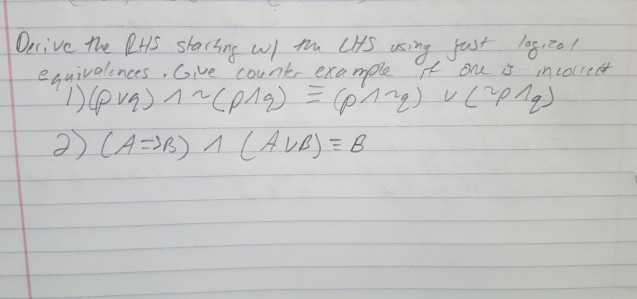 Derive the RHS starting w/ the LHS using just logical
equivalences. Give counter example if one is incorrect
1) (p∨q) ∧ ~(p∧q) ≡ (p∧~q) ∨ (~p∧q)
2) (A⇒B) ∧ (A∨B) ≡ B